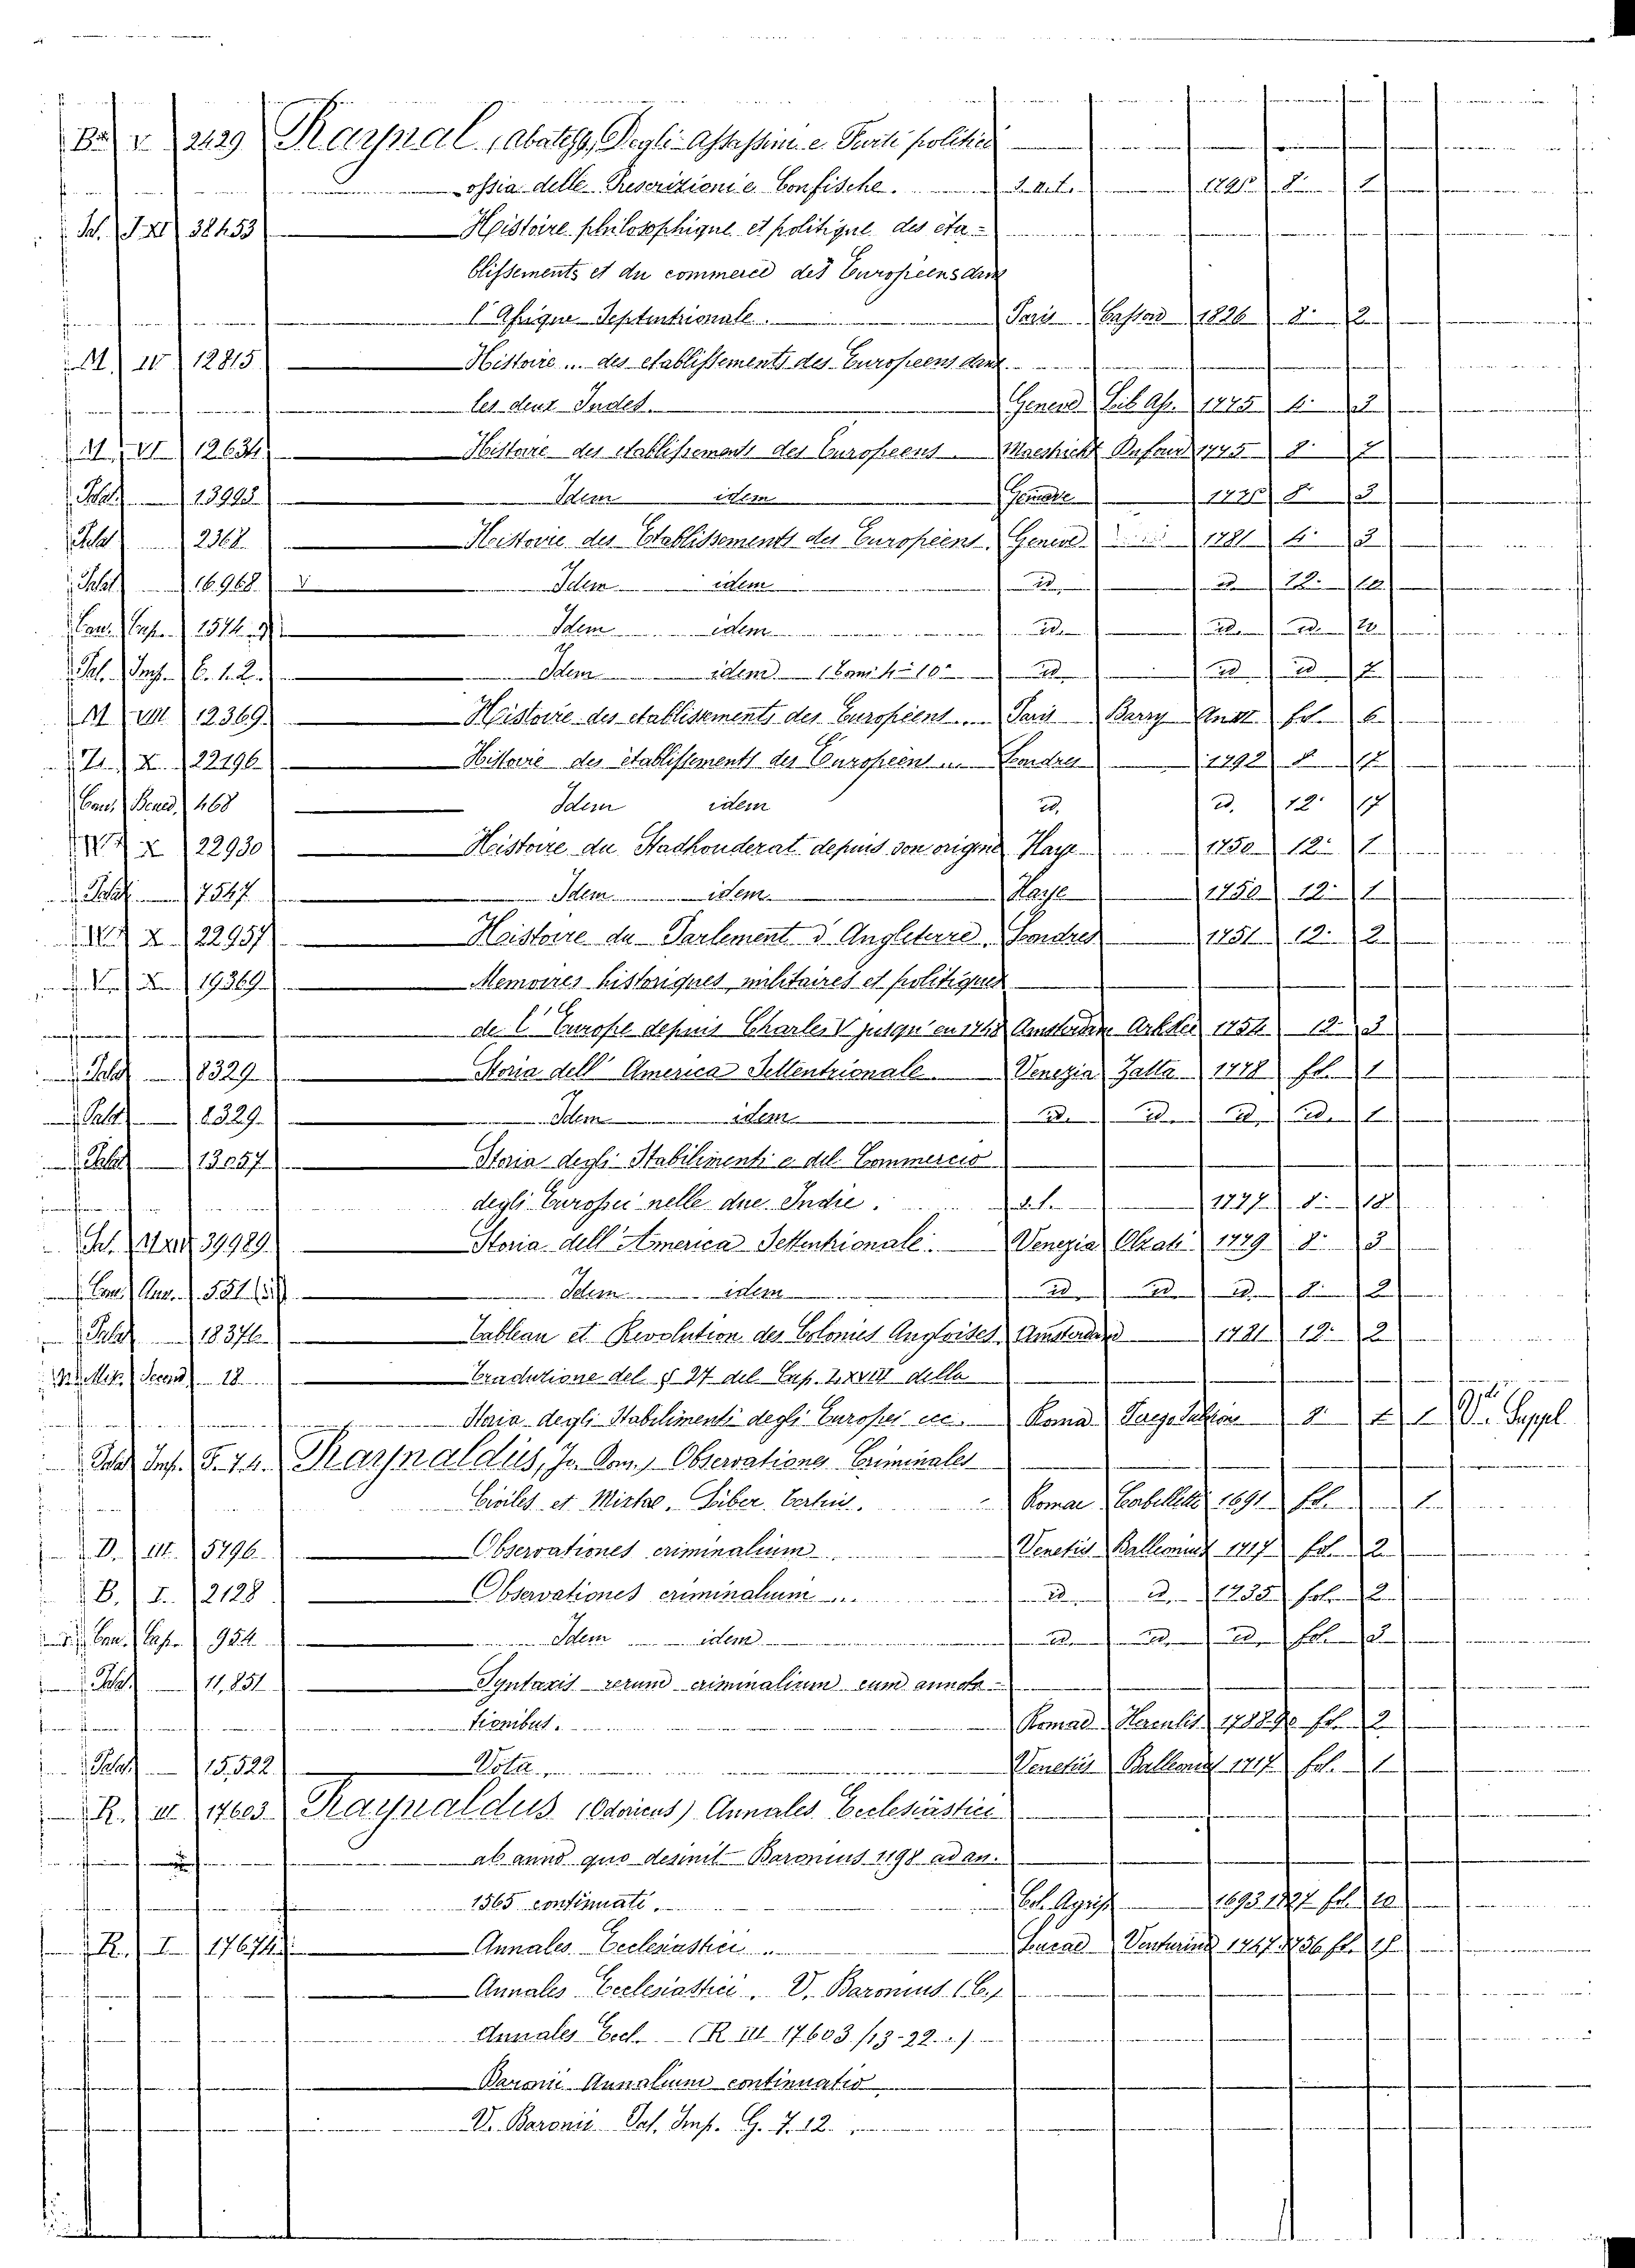 Ba V 2429 Raynal, abatess, Degli Assassini e Furti politici
ossia delle Proscrizioni e Confische. S. n. t. 8. 1
Sch. I. XI 38453 Histoire philosophique et politique des éta-
blissements et du commerce des Européens dans
l'Afrique Septentrionale. Paris 1826 8. 2
M. IV 12815 Histoire ... des etablissements des Europeens dans
les deux Indes. Geneve 1775 4. 3
M. VI 12634 Histoire des etablissements des Europeens Maestricht Dufour 1775 8. 7
Palat 13998 Idem idem Geneve 8. 3
Palat 2368 Histoire des Etablissements des Européens. Geneve 1781 4. 3
Palat 16968 Idem idem id. id. 12. 10
Conv. Capp. 1574 Idem idem id. id. id.
Pal. Imp. 6. 1. 2. Idem idem id. id. id.
M VIII 12369 Histoire des etablissements des Européens ... Paris Barry An III fol. 6
X 22196 Histoire des établissements des Européens ... Londres 1792 8. 17
Conv. Bened. 468 Idem idem id. id. 12. 17
X 22930 Histoire du Stadhouderat depuis son origine Haye 1750 12. 1
Palat 7547 Idem idem Haye 1750 12. 1
X 22957 Histoire du Parlement d'Angleterre. Londres 1751 12. 2
X 19369 Memoires historiques, militaires et politiques
de l'Europe depuis Charles V jusqu'en 1748 Amsterdam Arkstee 1754 12. 3
Palat 8329 Storia dell'America Settentrionale Venezia Zatta 1778 fol. 1
Palat 8329 Idem idem id. id. id. id. 1
Palat 13057 Storia degli Stabilimenti e del Commercio
degli Europei nelle due Indie. s. l. 1777 8. 18
39989 Storia dell'America Settentrionale. Venezia 1779 8. 3
Conv. 551 Idem idem id. id. id. 8. 2
Palat 18376 Tableau et Revolution des Colonies Angloises Amsterdam 1781 12. 2
18 Tradutione del § 27 del Cap. LXVIII della
Storia degli Stabilimenti degli Europei ecc. Roma 8. 1 V. Suppl
Palat Imp. F. 7. 4. Raynaldus, Jo. Dom., Observationes Criminales
Civiles et Mixtae. Liber tertius. Romae Corbelletti 1691 fol. 1
D. III. 5796 Observationes criminalium Venetiis Balleonius 1717 fol. 2
B. I. 2128 Observationes criminalium ... id. id. 1735 fol. 2
Conv. Capp. 954 Idem idem id. id. id. fol. 3
Palat 11,851 Syntaxis rerum criminalium cum annota-
tionibus. Romae fol. 2
Palat 15,522 Vota Venetiis Balleonius 1717 fol. 1
R. III 17603 Raynaldus (Odoricus) Annales Ecclesiastici
ab anno quo desinit Baronius 1198 ad an.
1565 continuati. Col. Agripp 1693 1727 fol. 10
R. I 17674 Annales Ecclesiastici ... Lucae Venturini 1747 1756 fl.
Annales Ecclesiastici. V. Baronius (C.)
Annales Eccl. (R III 17603/13-22.)
Baronii Annalium continuatio
V. Baronii Pal. Imp. G. 7. 12.